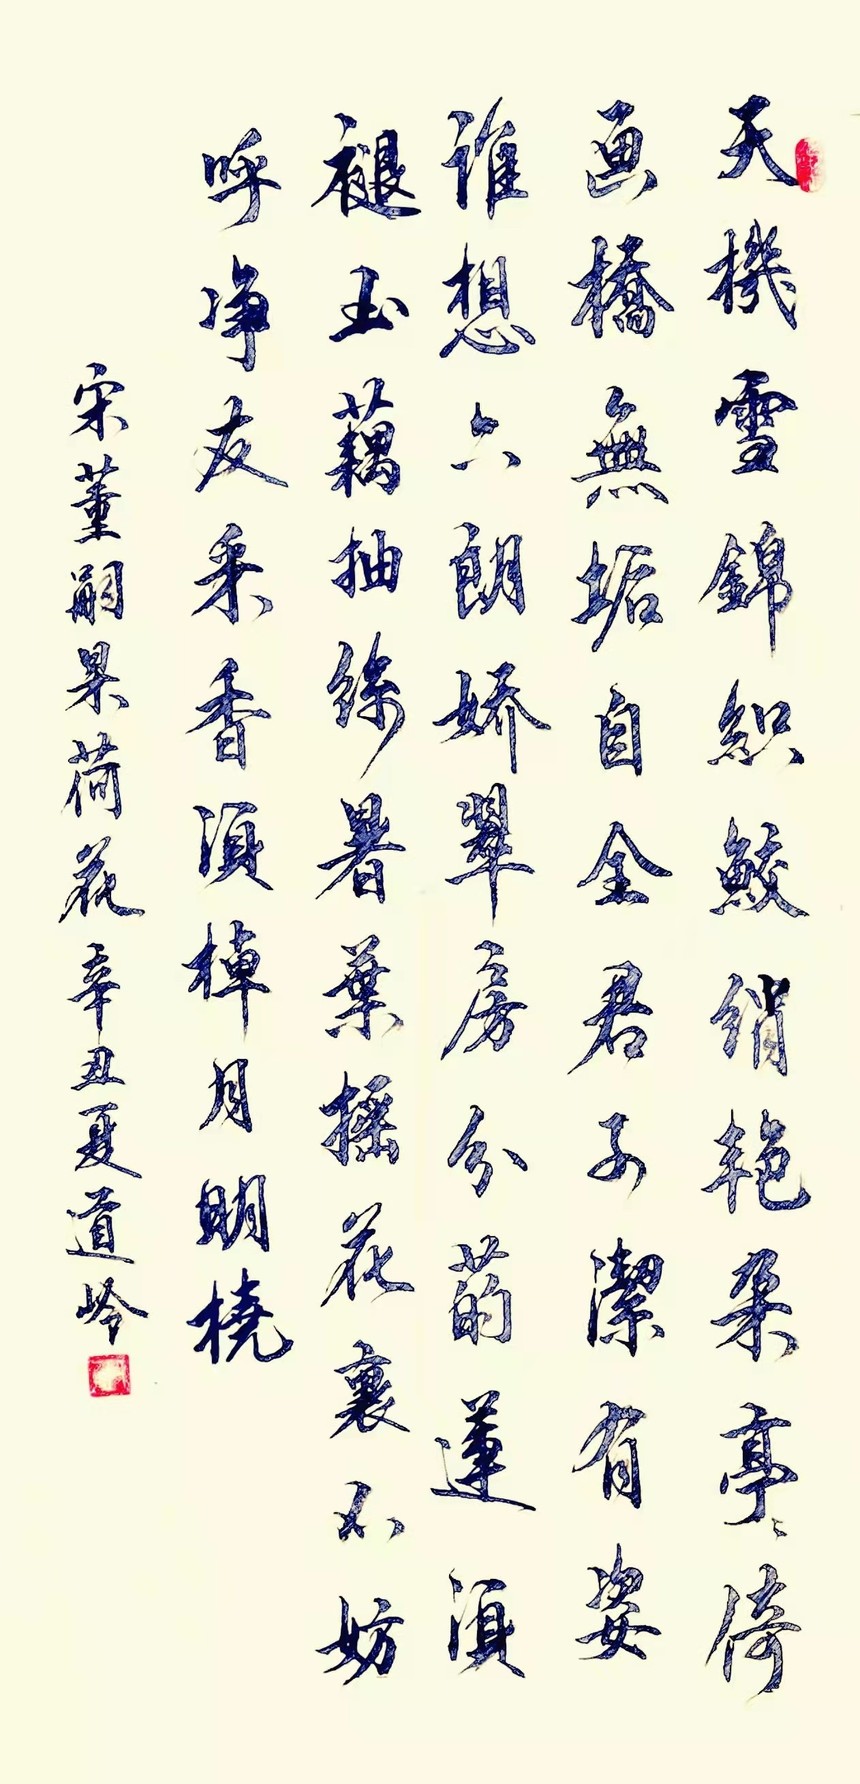 天機雪錦織鮫绡艳朵亭〻倚
画橋無垢自全君子潔有姿
谁想六朗娇翠房分菂蓮須
褪玉藕抽絲暑葉摇花裏不妨
呼净友采香須棹月明橈
宋董嗣杲荷花辛丑夏道岭